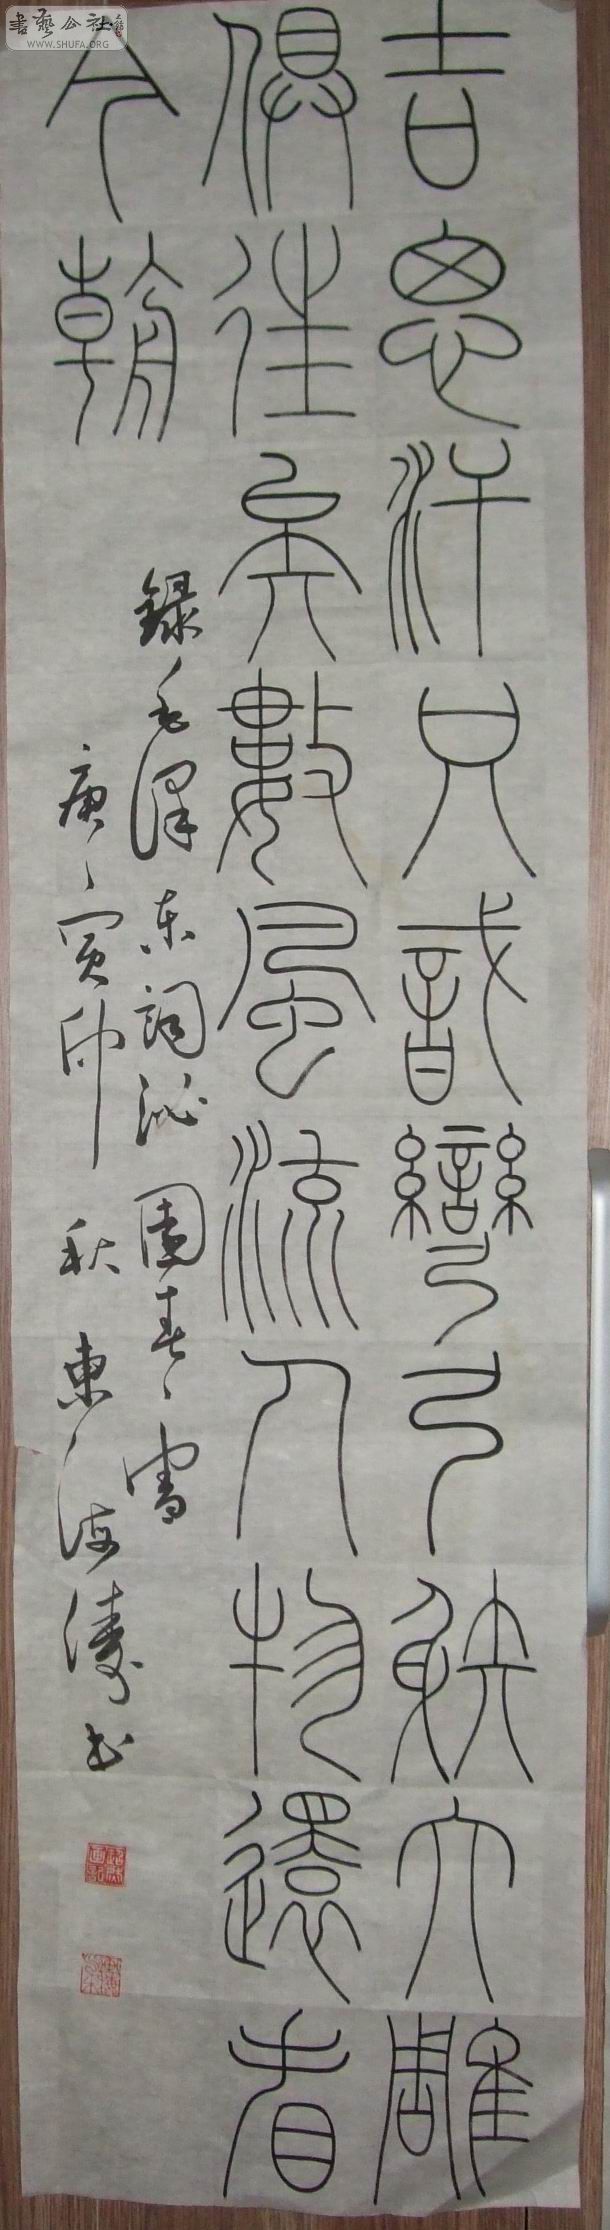 書藝公社
WWW.SHUFA.ORG
吉思汗只識彎弓䠶大雕
俱往矣數風流人物還看
今朝
錄毛澤东詞沁園春雪
庚寅仲秋東海濤书